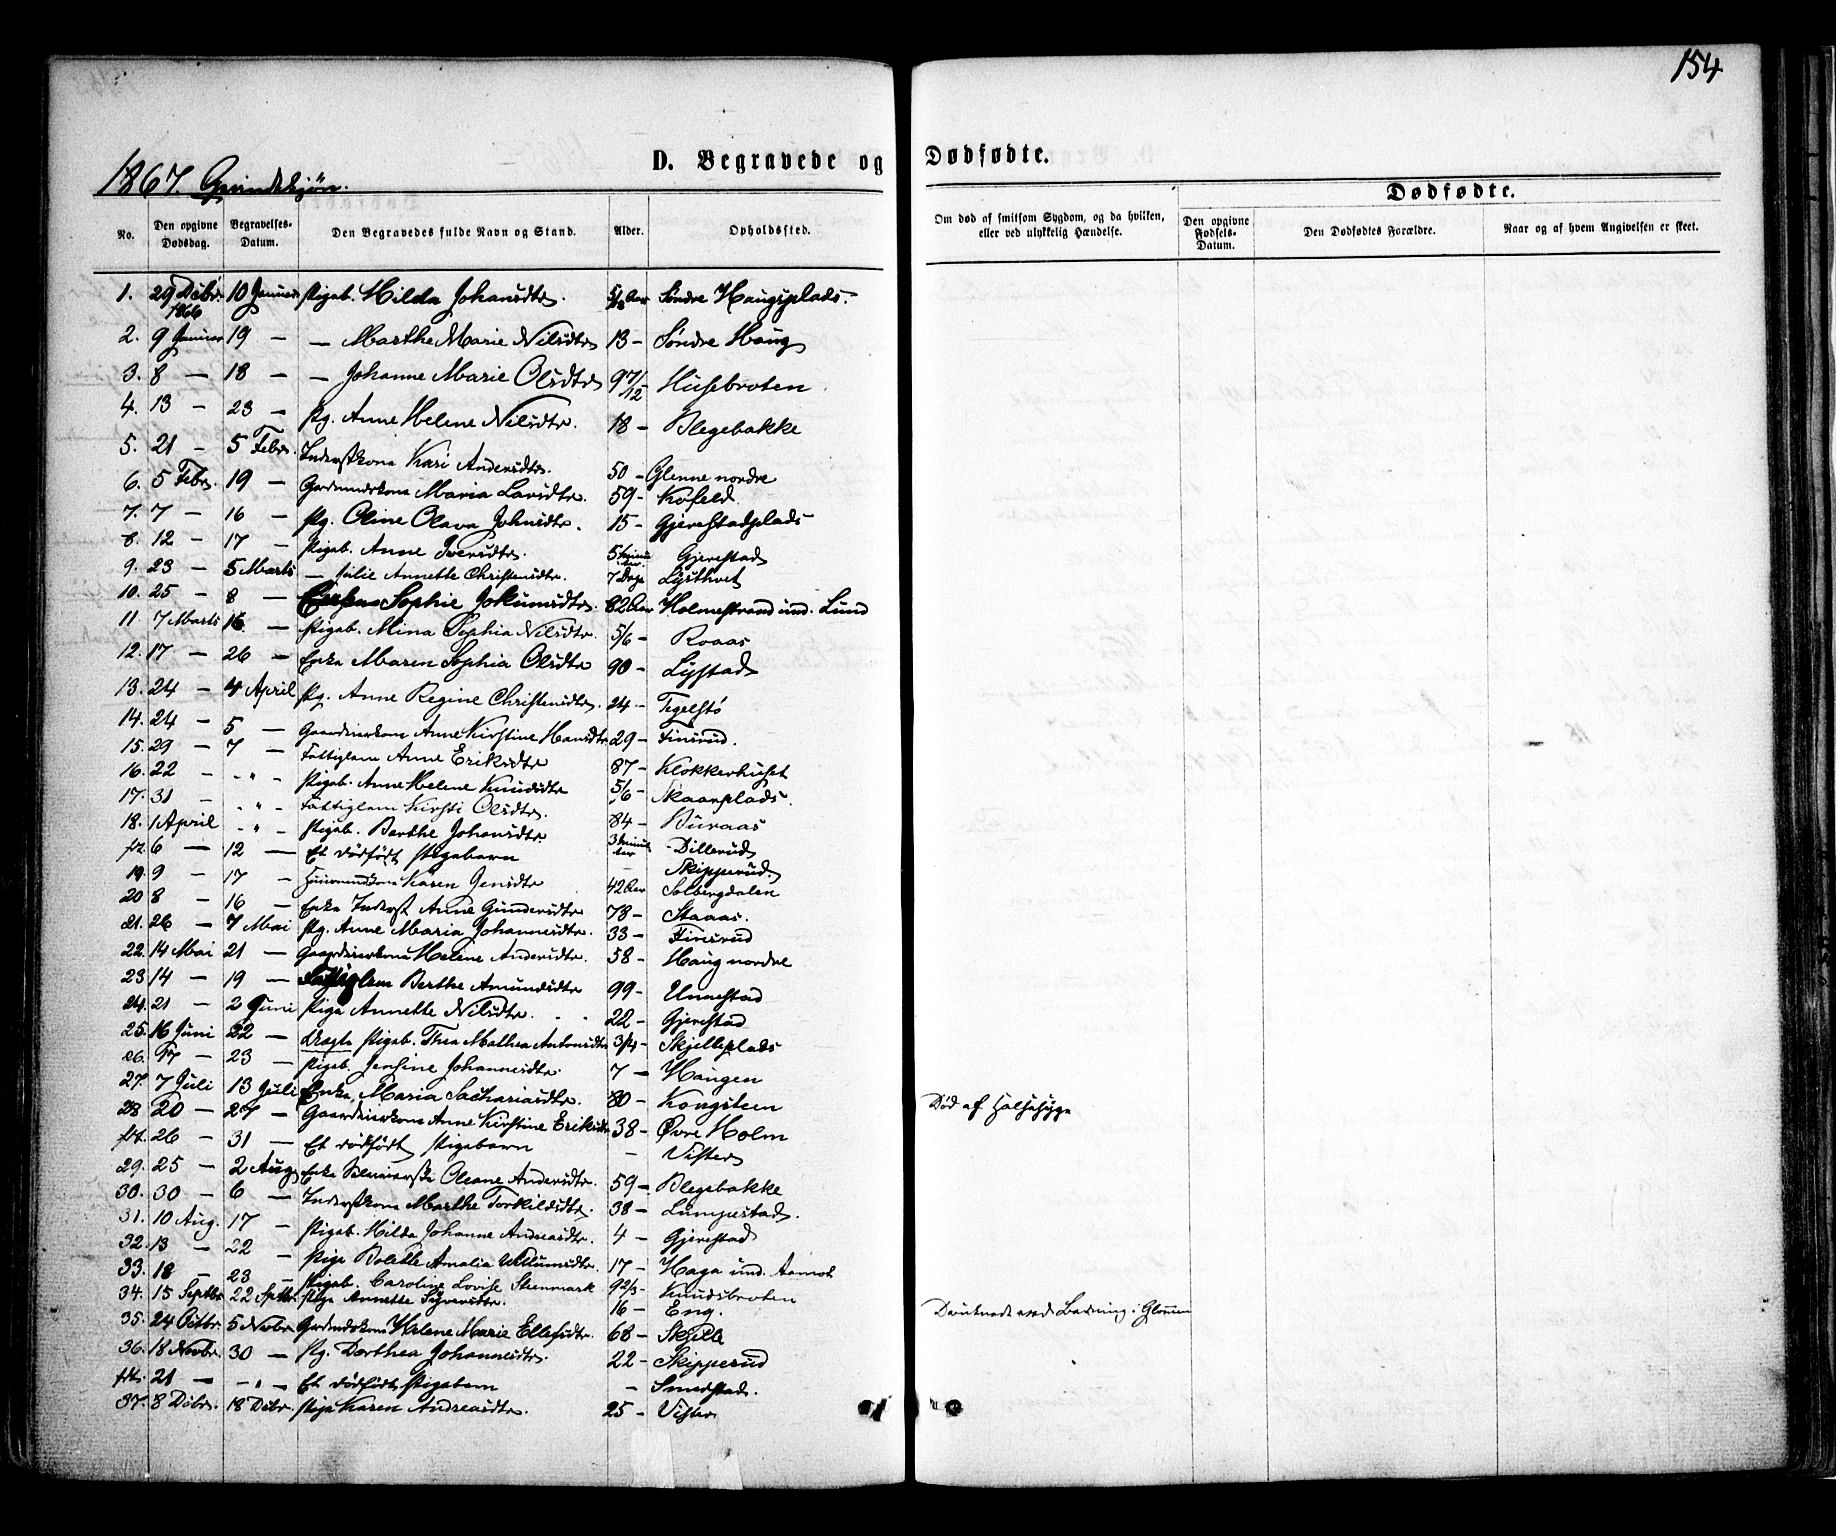 154
D. Begravede og Dødfødte.
1867. Qvindekjøn.
Dødfødte.
No. Den opgivne Dødsdag. Begravelses-Datum. Den Begravedes fulde Navn og Stand. Alder. Opholdssted. Om død af smitsom Sygdom, og da hvilken, eller ved ulykkelig Hændelse. Den opgivne Fødsels-Datum. Den Dødfødtes Forældre. Naar og af hvem Angivelsen er skeet.
1. 29 Dcbr. 1866 10 Januar Pigeb. Hilda Johansdtr. 5/12 Aar Søndre Haugsplads.
2. 9 Januar 19 — — Marthe Marie Nilsdtr 13 — Søndre Haug
3. 8 — 18 — — Johanne Marie Olsdtr 9 7/12 — Husebroten
4. 13 — 23 — Pg. Anne Helene Nilsdtr. 18 — Blegebakke
5. 21 — 5 Febr. Inderstkone Kari Andersdtr. 50 — Glenne nordre
6. 5 Febr. 19 — Gaardmandskone Maria Larsdtr. 59 — Kofeld
7. 7 — 16 — Pg. Oline Olava Johnsdtr. 15 — Gjerestadplads
8. 12 — 17 — Pigeb. Anne Iversdtr. 5 Minutter Gjerestad
9. 23 — 5 Marts — Julie Annette Christensdtr. 7 Dage Lysthvet
10. 25 — 8 — Sophie Jokumsdtr. 82 Aar Holmestrand ind. Lund
11. 7 Marts 16 — Pigeb. Mina Sophia Nilsdtr. 5/6 — Roaas
12. 17 — 26 — Enke Maren Sophia Olsdtr 90 — Lystad
13. 24 — 4 April Pg. Anne Regine Christensdtr. 24 — Tegelstø
14. 24 — 5 — Gaardeierkone Anne Kirstine Hansdtr 29 — Finsrud.
15. 29 — 7 — Fattiglem Anne Eriksdtr 87 — Klokkerhuset
16. 22 — - " - Pigeb. Anne Helene Knudsdtr 5/6 — Skaarplads.
17. 31 — - " - Fattiglem Kirsti Olsdtr. 84 — Buraas
18. 1 April - " - Pigeb. Berthe Johansdtr. 3 Minutter Dillerud
fr. 6 — 12 — Et dødfødt Pigebarn — Skipperud.
19. 9 — 17 — Huusmandskone Karen Jensdtr 42 Aar Solbergdalen
20. 8 — 16 — Enke Inderst Anne Gundersdtr 78 — Staaas.
21. 26 — 7 Mai Pg. Anne Maria Johannesdtr. 33 — Finsrud
22. 14 Mai 21 — Gaardeierkone Helene Andersdtr. 58 — Haug nordre
23. 14 — 19 — Fattiglem Berthe Amundsdtr 99 — Unnestad
24. 21 — 2 Juni Pige Annette Nilsdtr. 22 — Gjerestad
25. 16 Juni 22 — Døgte Pigeb. Thea Mathea Antonsdtr 3/4 — Skjelleplads
26. 17 — 23 — Pigeb. Jensine Johannesdtr. 7 — Haugen
27. 7 Juli 13 Juli Enke Maria Sachariasdtr. 80 — Kongsteen
28. 20 — 27 — Gaardeierkone Anne Kirstine Eriksdtr 38 — Øvre Holm Død af Halssyge
fr. 26 — 31 — Et dødfødt Pigebarn — Vister
29. 25 — 2 Aug. Enke Oleane Andersdtr. 59 — Blegebakke
30. 30 — 6 — Inderstkone Marthe Torkildsdtr. 38 — Lumpestad.
31. 10 Aug. 17 — Pigeb. Hilda Johanne Andreasdtr. 4 — Gjerestad
32. 13 — 22 — Pige Bolette Amalia Willumsdtr. 17 — Haga ind. Aamot
33. 18 — 23 — Pigeb. Caroline Lovise Steenmark 9 2/3 — Knudsbroten
34. 15 Septbr 22 Septbr. Pige Annette Syversdtr. 16 — Eng. Druknede ved Badning i Glommen
35. 24 Octbr. 5 Novbr. Gaardmandskone Helene Marie Ellefsdtr. 68 — Skjelle
36. 18 Novbr. 30 — Pg. Dorthea Johannesdtr. 22 — Skipperud
fr. 21 — - " - Et dødfødt Pigebarn — Smedstad.
37. 8 Dcbr. 18 Dcbr. Pige Karen Andreasdtr. 25 — Vister